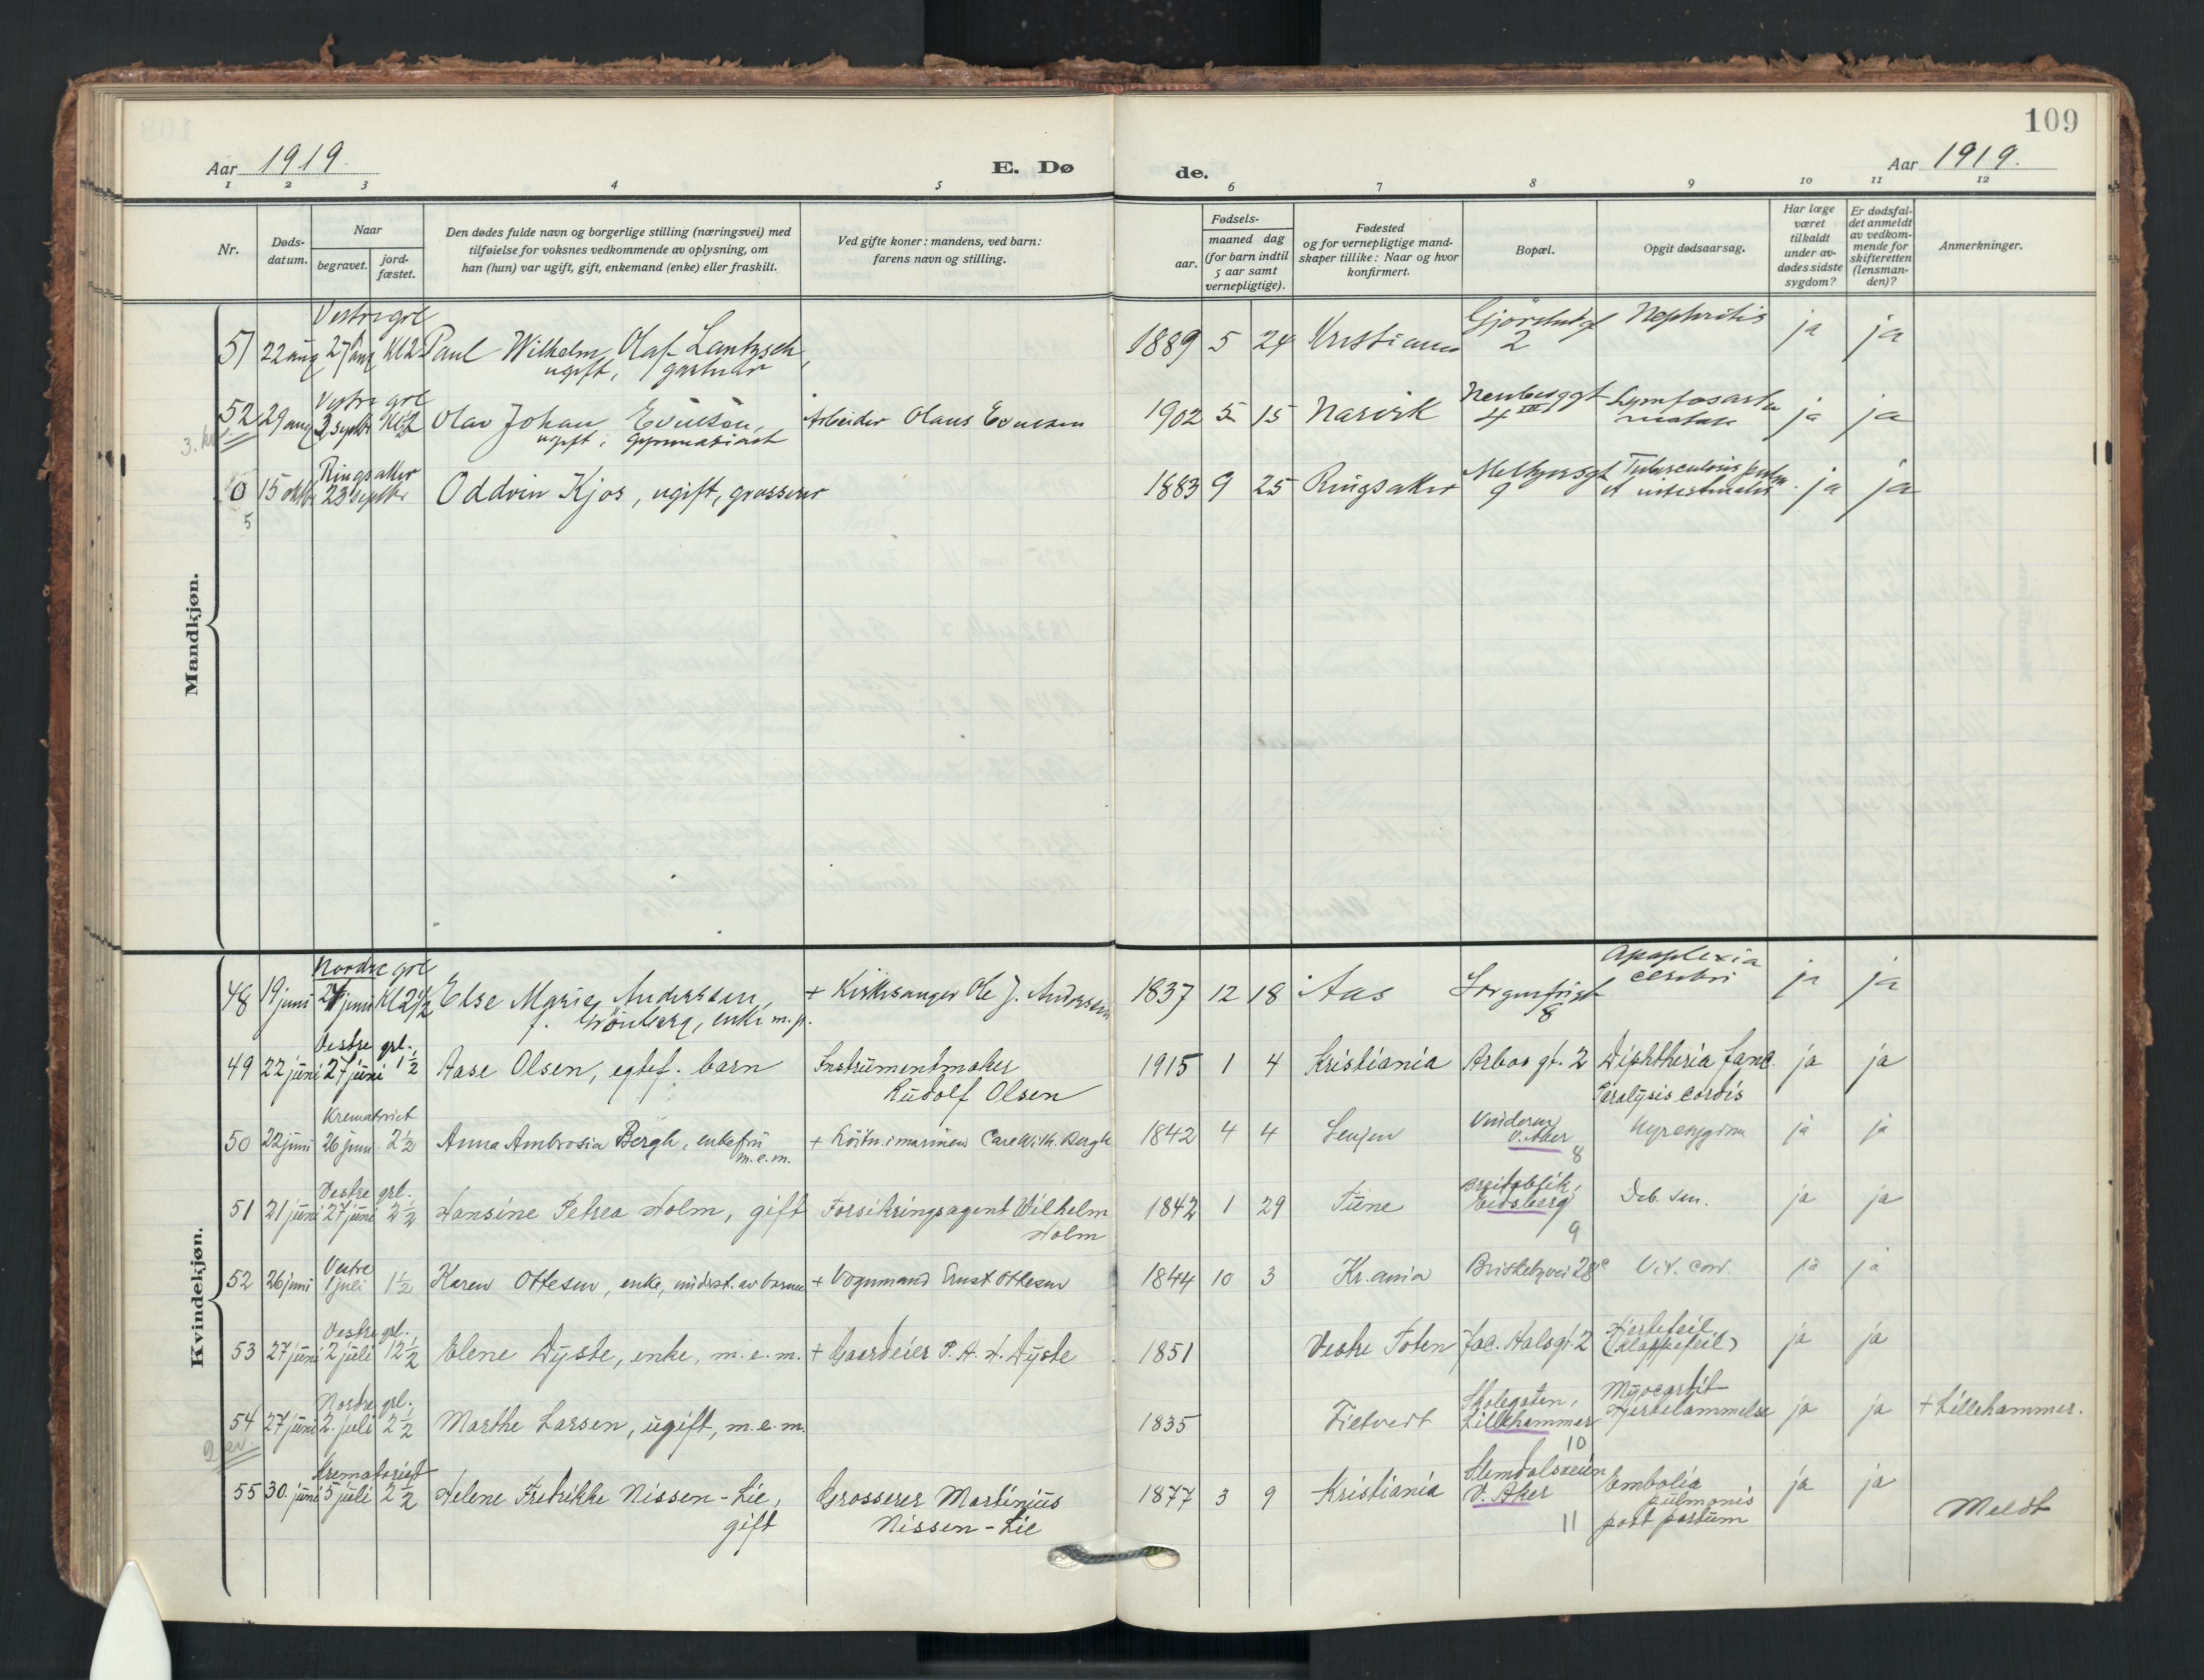 109
Aar 1919.
E. Døde.
Aar 1919.
1 2 3 4 5 6 7 8 9 10 11 12
Nr.
Døds-
datum.
Naar
begravet.
jord-
fæstet.
Den dødes fulde navn og borgerlige stilling (næringsvei) med
tilføielse for voksnes vedkommende av oplysning, om
han (hun) var ugift, gift, enkemand (enke) eller fraskilt.
Ved gifte koner: mandens, ved barn:
farens navn og stilling.
Fødsels-
aar.
maaned dag
(for barn indtil
5 aar samt
vernepligtige).
Fødested
og for vernepligtige mand-
skaper tillike: Naar og hvor
konfirmert.
Bopæl.
Opgit dødsaarsag.
Har læge
været
tilkaldt
under av-
dødes sidste
sygdom?
Er dødsfal-
det anmeldt
av vedkom-
mende for
skifteretten
(lensman-
den)?
Anmerkninger.
Mandkjøn.
Vestre grl
51 22 aug 27 aug Kl 2 Paul Wilhelm Olaf Lantzsch, 1889 5 24 Kristiania 2 Nephritis ja ja
ugift, gartner
Vestre grl
52 29 aug 3 septbr Kl 2 Olav Johan Evensen, Arbeider Olaus Evensen 1902 5 15 Narvik 4 III ja ja
ugift, gymnasiast
Ringsaker
0 15 23 septbr Oddvin Kjos, ugift, grosserer 1883 9 25 Ringsaker Meltzersgt 9 Tuberculosis pulm. et intestinalis ja ja
5
Kvindekjøn.
Nordre grl
48 19 juni 24 juni Kl 2 1/2 Else Marie Anderssen, + Kirkesanger Ole J. Anderssen 1837 12 18 Aas Sorgenfrigt 8 Apoplexia cerebri ja ja
f. Grönberg, enke m. p.
Vestre grl.
49 22 juni 27 juni 1 1/2 Aase Olsen, egtef. barn Instrumentmaker 1915 1 4 Kristiania Arbos gt. 2 Diphtheria fauc. ja ja
Rudolf Olsen Paralysis cordis
Krematoriet
50 22 juni 26 juni 2 1/2 Anna Ambrosia Bergh, enkefru + Löitn. i marinen Carl Wilh. Bergh 1842 4 4 Senjen Vinderen Nyresygdom ja ja
m. e. m. V. Aker 8
Vestre grl.
51 21 juni 27 juni 2 1/2 Hansine Petrea Holm, gift Forsikringsagent Wilhelm 1842 1 29 Tune Breidablik, Deb. sen. ja ja
Holm Eidsberg 9
Vestre
52 26 juni 1 juli 1 1/2 Karen Ottesen, enke, underst. av barnene + Vognmand Ernst Ottesen 1844 10 3 Kr.ania Briskebyvei 28c Vit. cord. ja ja
Vestre grl.
53 27 juni 2 juli 12 1/2 Elene Dyste, enke, m. e. m. + Gaardeier P. A. H. Dyste 1851 Vestre Toten Jac. Aalsgt. 2 Hjertefeil ja ja
(klaffefeil)
Nordre grl.
54 27 juni 2. juli 2 1/2 Marthe Larsen, ugift, m. e. m. 1835 Skolegaten, Myocardit ja ja + Lillehammer.
Lillehammer Hjertelammelse
10
Krematoriet
55 30. juni 5 juli 2 1/2 Helene Fredrikke Nissen-Lie, Grosserer Martinius 1877 3 9 Kristiania Slemdalsveien Embolia ja ja
gift Nissen-Lie V. Aker pulmonis Meldt
11 post partum